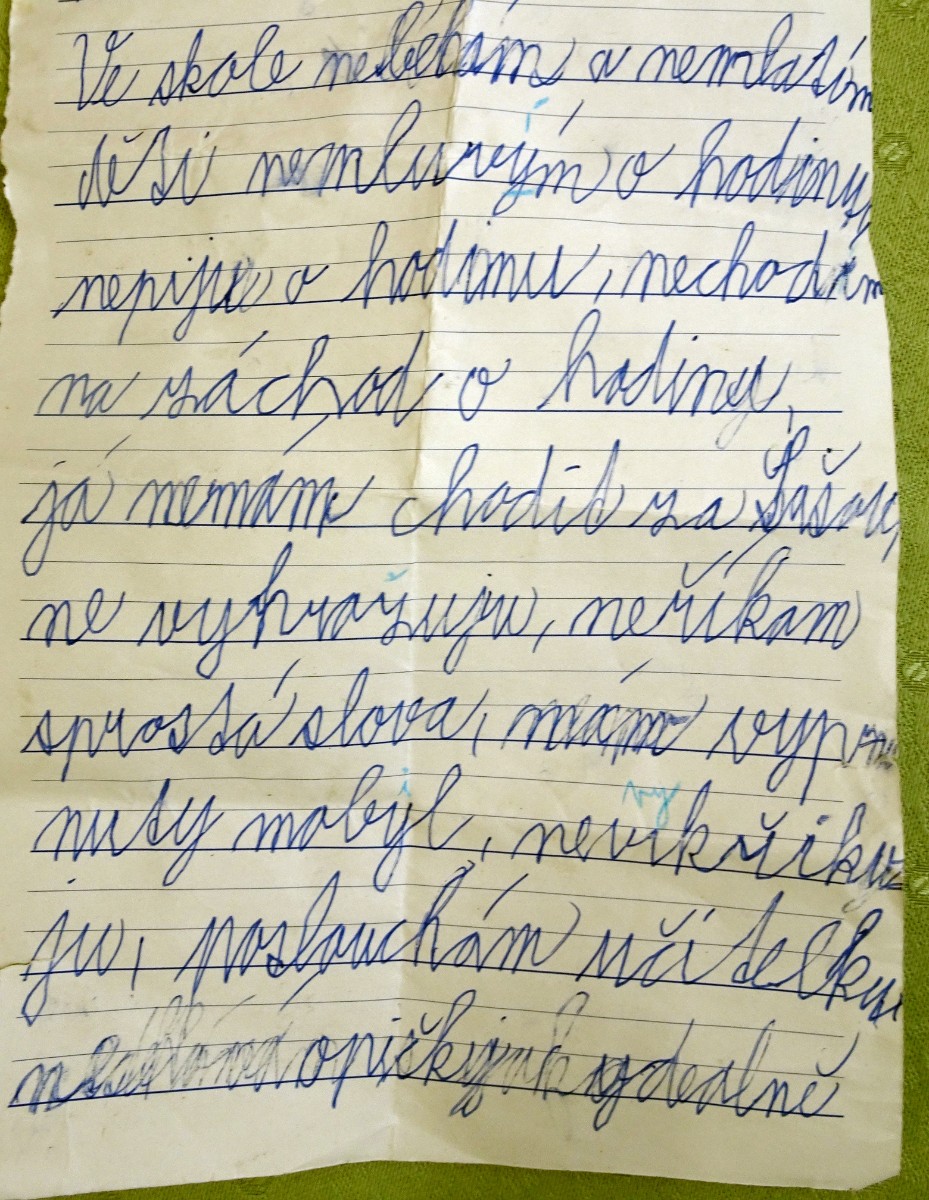 Ve skole neběhám a nemlatím
děti nemluvým o hodiny,
nepiju o hodinu, nechodím
na záchod o hodiny,
já nemám chodit za Sašou,
ne vyhražuju, neříkam
sprostá slova, mám vyp
nuty mobyl, nevikřiku
i vy
ju, poslouchám učitelku
opičky